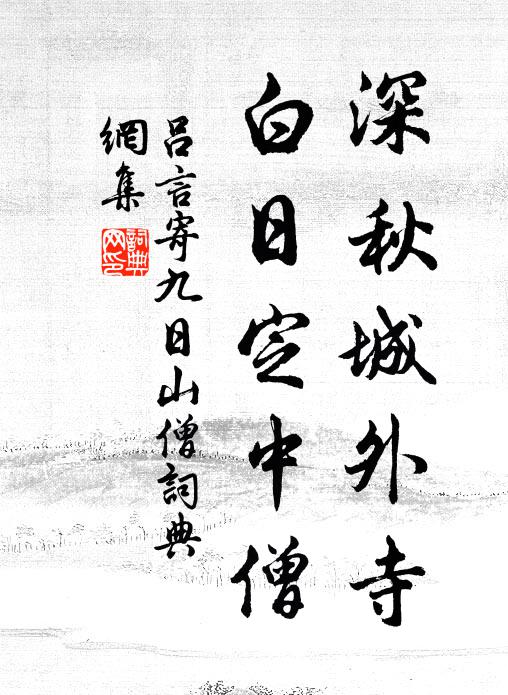 深秋城外寺
白日定中僧
吕言寄九日山僧詞典
網集
詞典
网印